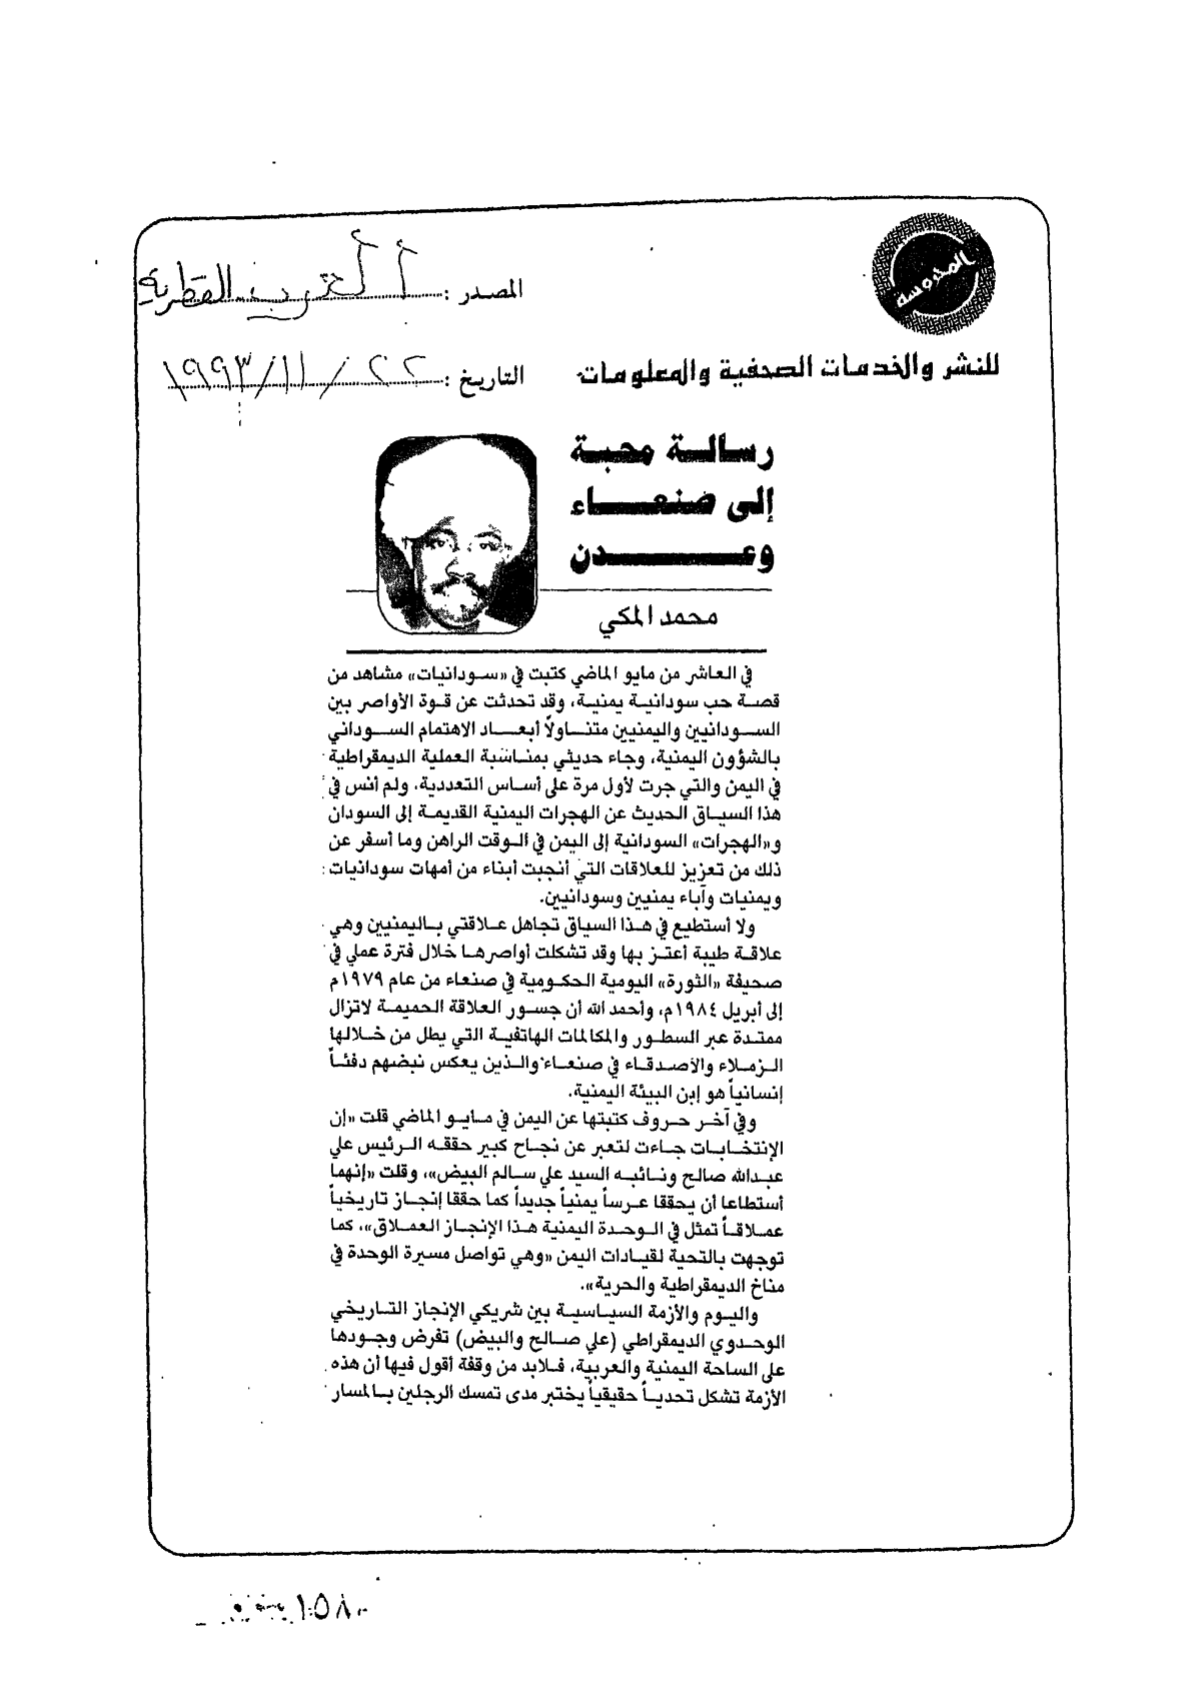 المحروسة
المصدر : الشرق القطرية
للنشر والخدمات الصحفية والمعلومات
التاريخ : ٢٢ / ١١ / ١٩٩٣
رسالة محبة
إلى صنعاء
وعدن
محمد المكي
في العاشر من مايو الماضي كتبت في «سودانيات» مشاهد من
قصة حب سودانية يمنية، وقد تحدثت عن قوة الأواصر بين
السودانيين واليمنيين متناولاً أبعاد الاهتمام السوداني
بالشؤون اليمنية، وجاء حديثي بمناسبة العملية الديمقراطية
في اليمن والتي جرت لأول مرة على أساس التعددية، ولم أنس في
هذا السياق الحديث عن الهجرات اليمنية القديمة إلى السودان
و«الهجرات» السودانية إلى اليمن في الوقت الراهن وما أسفر عن
ذلك من تعزيز للعلاقات التي أنجبت أبناء من أمهات سودانيات
ويمنيات وآباء يمنيين وسودانيين.
ولا أستطيع في هذا السياق تجاهل علاقتي باليمنيين وهي
علاقة طيبة أعتز بها وقد تشكلت أواصرها خلال فترة عملي في
صحيفة «الثورة» اليومية الحكومية في صنعاء من عام ١٩٧٩م
إلى أبريل ١٩٨٤م، وأحمد الله أن جسور العلاقة الحميمة لاتزال
ممتدة عبر السطور والمكالمات الهاتفية التي يطل من خلالها
الزملاء والأصدقاء في صنعاء والذين يعكس نبضهم دفئاً
إنسانياً هو إبن البيئة اليمنية.
وفي آخر حروف كتبتها عن اليمن في مايو الماضي قلت «إن
الإنتخابات جاءت لتعبر عن نجاح كبير حققه الرئيس علي
عبدالله صالح ونائبه السيد علي سالم البيض»، وقلت «إنهما
أستطاعا أن يحققا عرساً يمنياً جديداً كما حققا إنجاز تاريخياً
عملاقاً تمثل في الوحدة اليمنية هذا الإنجاز العملاق»، كما
توجهت بالتحية لقيادات اليمن «وهي تواصل مسيرة الوحدة في
مناخ الديمقراطية والحرية».
واليوم والأزمة السياسية بين شريكي الإنجاز التاريخي
الوحدوي الديمقراطي (علي صالح والبيض) تفرض وجودها
على الساحة اليمنية والعربية، فلابد من وقفة أقول فيها أن هذه
الأزمة تشكل تحدياً حقيقياً يختبر مدى تمسك الرجلين بالمسار
١٥٨٠